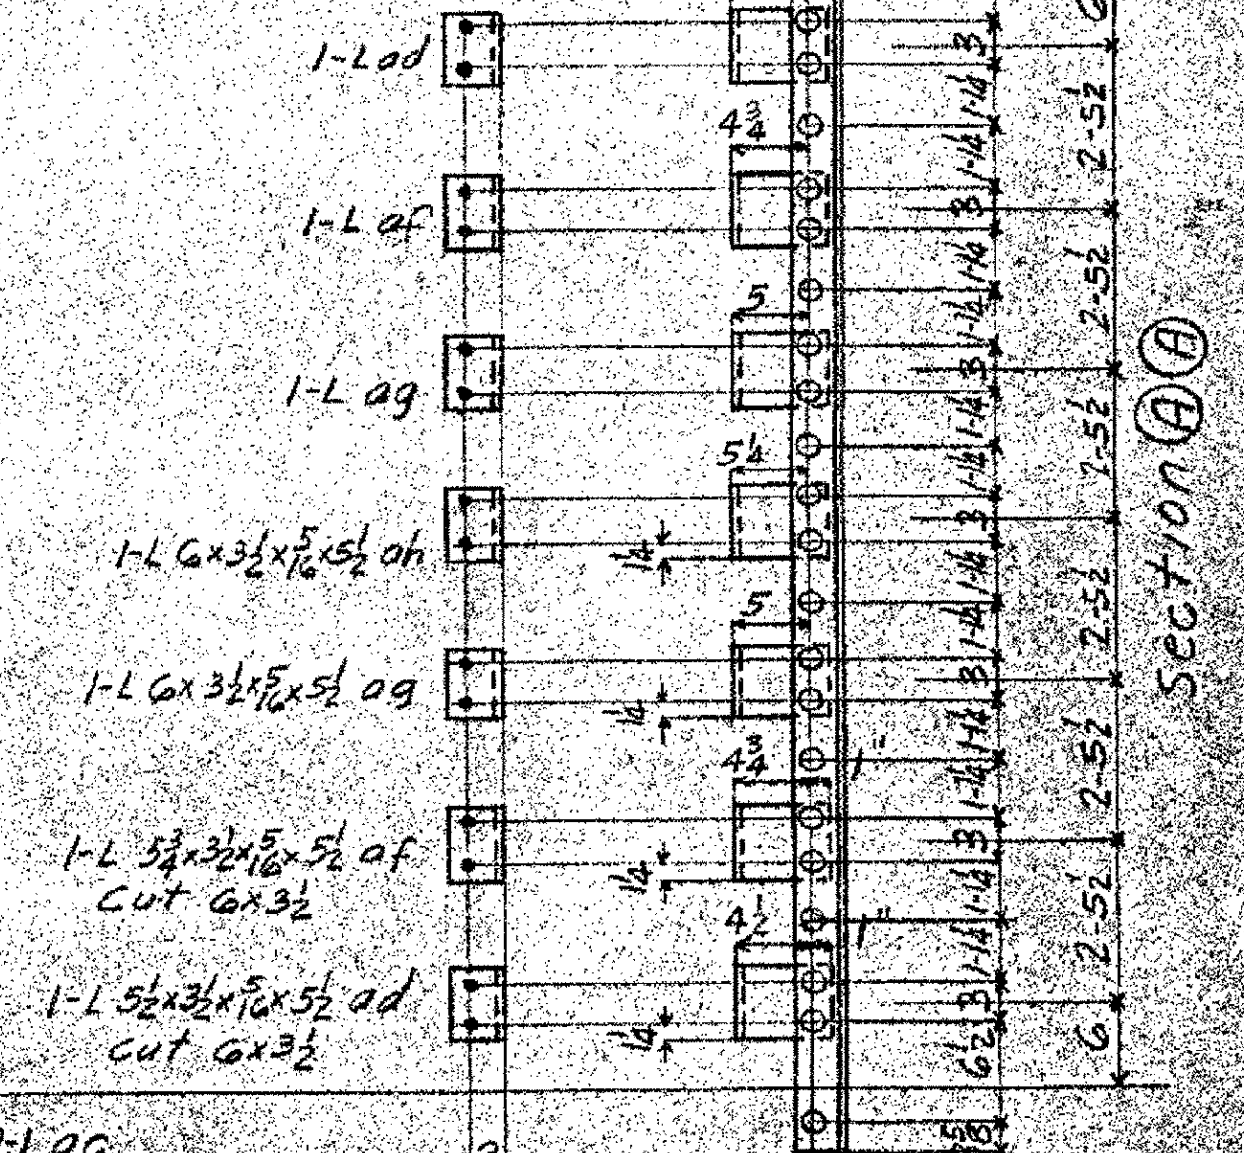 1-L ad
1-L af
1-L ag
1-L 6x3½x5/16x5½ ah
1-L 6x3½x5/16x5½ ag
1-L 5¾x3½x5/16x5½ af
Cut 6x3½
1-L 5½x3½x5/16x5½ ad
Cut 6x3½
4¾
5
5¼
1¼
5
1¼
4¾
1"
1¼
4½
1"
1¼
3
1-1¼
1-1¼
3
1-1¼
1-1¼
3
1-1¼
1-1¼
3
1-1¼
1-1¼
3
1-1¼
1-1¼
3
1-1¼
1-1¼
3
6½
6
2-5½
2-5½
2-5½
2-5½
2-5½
2-5½
6
Section A A